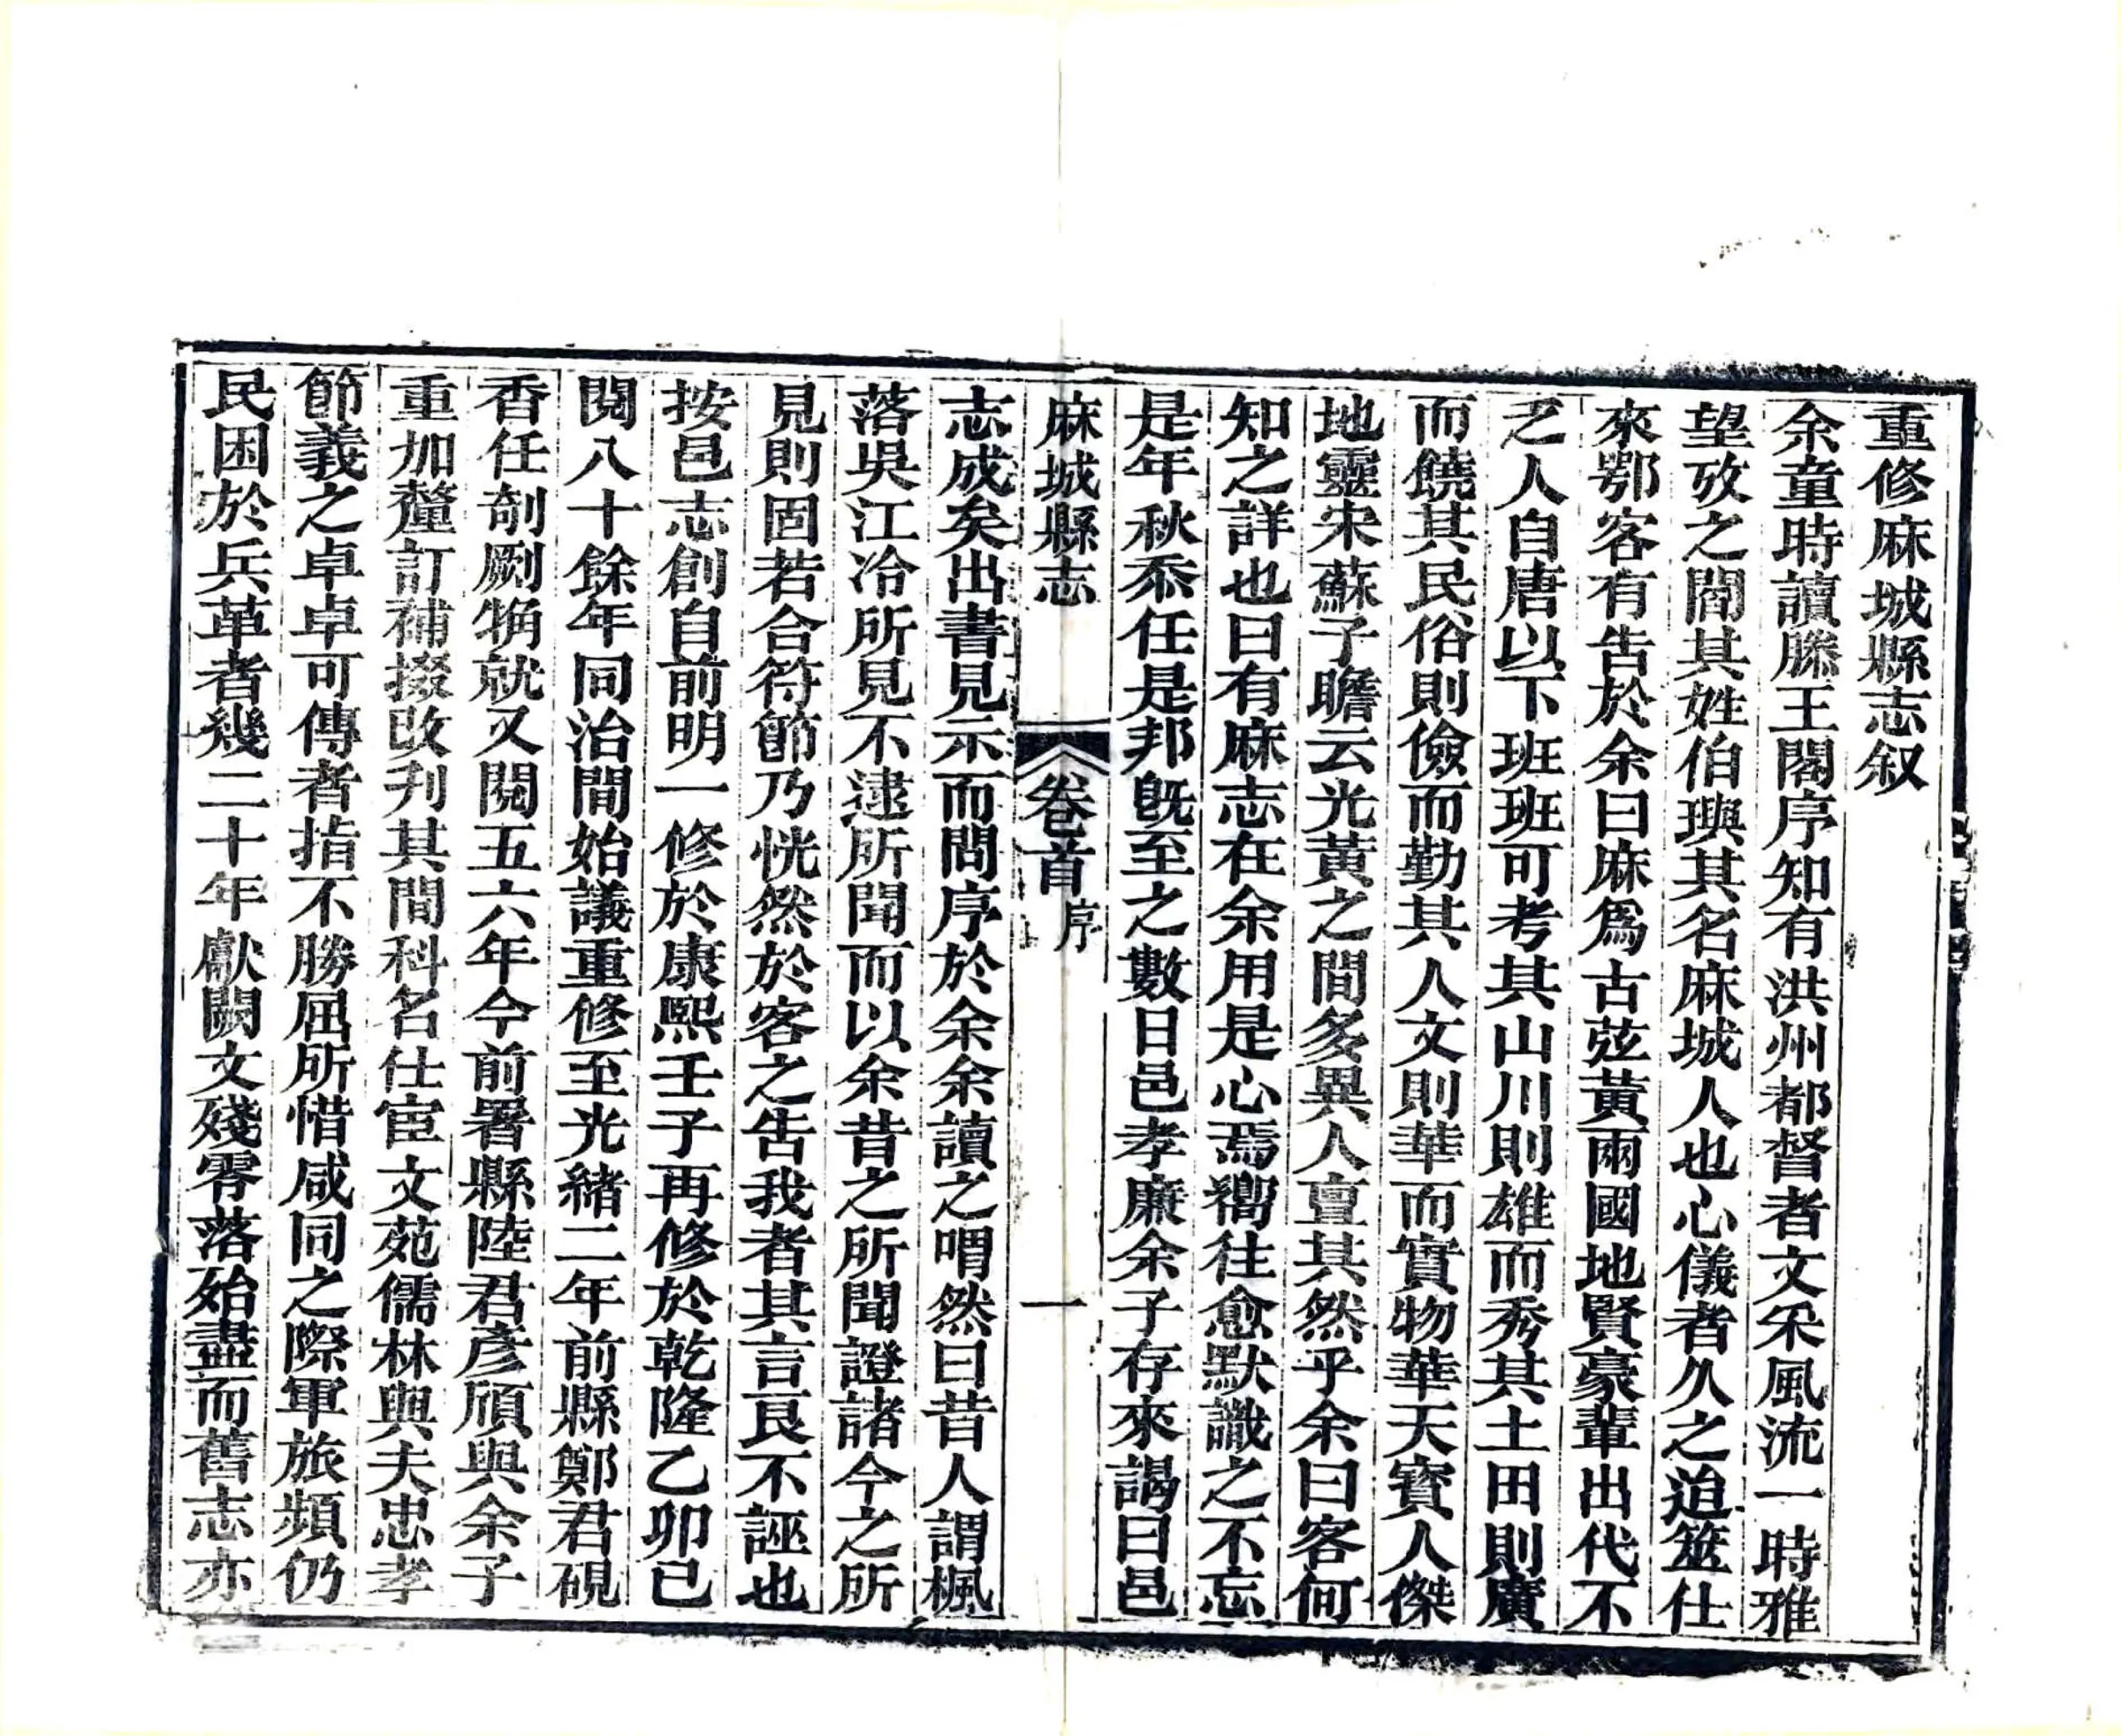 重修麻城縣志叙
余童時讀滕王閣序知有洪州都督者文采風流一時雅
望攷之閻其姓伯璵其名麻城人也心儀者久之迨筮仕
來鄂客有告於余曰麻爲古弦黃兩國地賢豪輩出代不
乏人自唐以下班班可考其山川則雄而秀其土田則廣
而饒其民俗則儉而勤其人文則華而實物華天寳人傑
地靈宋蘇子瞻云光黃之間多異人亶其然乎余曰客何
知之詳也曰有麻志在余用是心焉嚮往愈默識之不忘
是年秋忝任是邦旣至之數日邑孝廉余子存來謁曰邑
麻城縣志
卷首
序
一
志成矣出書見示而問序於余余讀之喟然曰昔人謂楓
落吳江冷所見不逮所聞而以余昔之所聞證諸今之所
見則固若合符節乃恍然於客之告我者其言良不誣也
按邑志創自前明一修於康熙壬子再修於乾隆乙卯已
閱八十餘年同治間始議重修至光緒二年前縣鄭君硯
香任剞劂觕就又閱五六年今前署縣陸君彥頎與余子
重加釐訂補掇改刋其間科名仕宦文苑儒林與夫忠孝
節義之卓卓可傳者指不勝屈所惜咸同之際軍旅頻仍
民困於兵革者幾二十年獻闕文殘零落殆盡而舊志亦